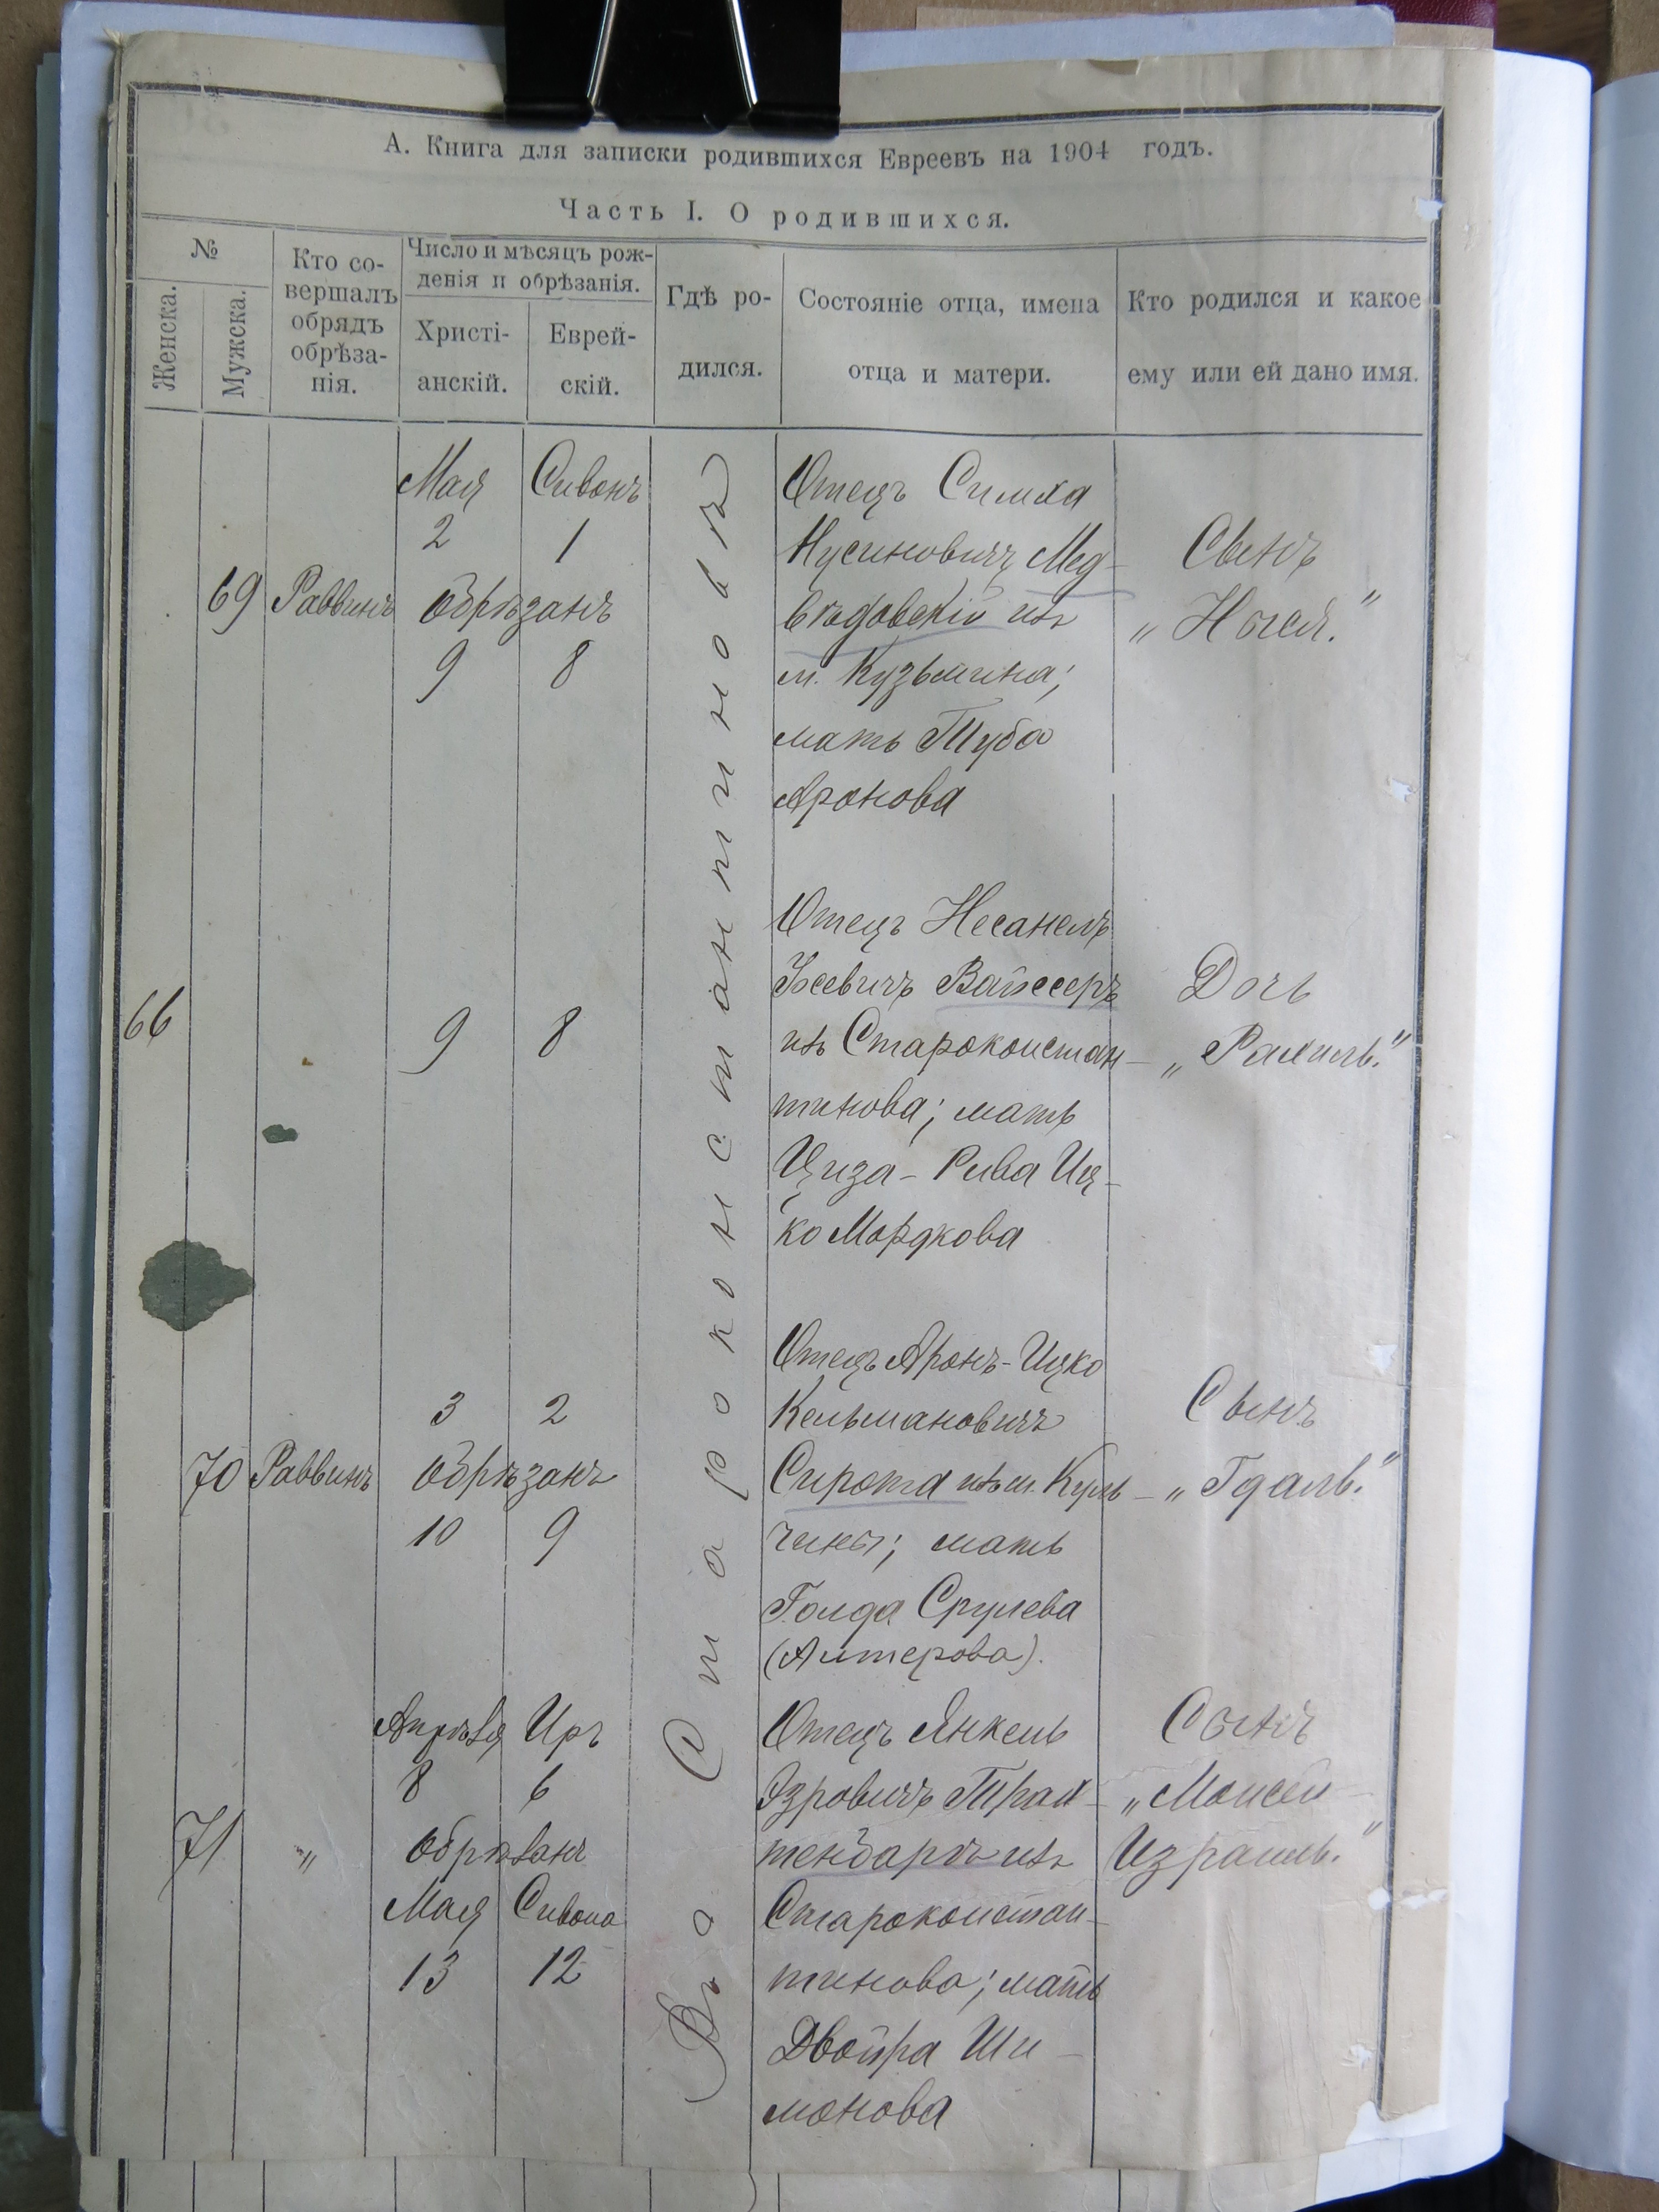 А. Книга для записки родившихся Евреевъ на 1904 годъ.
Часть I. О родившихся.
№
Женска.
Мужска.
Кто со-
вершалъ
обрядъ
обрѣза-
нія.
Число и мѣсяцъ рож-
денія и обрѣзанія.
Христі-
анскій.
Еврей-
скій.
Гдѣ ро-
дился.
Состояніе отца, имена
отца и матери.
Кто родился и какое
ему или ей дано имя.
Въ Староконстантиновѣ
69 Раввинъ
Мая Сивонъ
2 1
обрѣзанъ
9 8
Отецъ Симха
Нусиновичъ Мед-
вѣдовскій изъ
м. Кузьмина;
мать Туба
Аронова
Сынъ
66
9 8
Отецъ Несанелъ
Іосевичъ Вайссеръ
изъ Староконстан-
тинова; мать
Циза-Рива Иц-
ко Мордкова
Дочь
„Рахиль."
70 Раввинъ
3 2
обрѣзанъ
10 9
Отецъ Аронъ-Ицко
Кельмановичъ
Сирота изъ м. Куль-
чины; мать
Голда Срулева
(Алтерова).
Сынъ
„Гдаль."
71 „
Апрѣля Иръ
8 6
обрѣзанъ
Мая Сивона
13 12
Отецъ Янкель
Эзровичъ Трах-
тенбаргъ изъ
Староконстан-
тинова; мать
Двойра Ши-
монова
Сынъ
„Моисей-
Израиль."